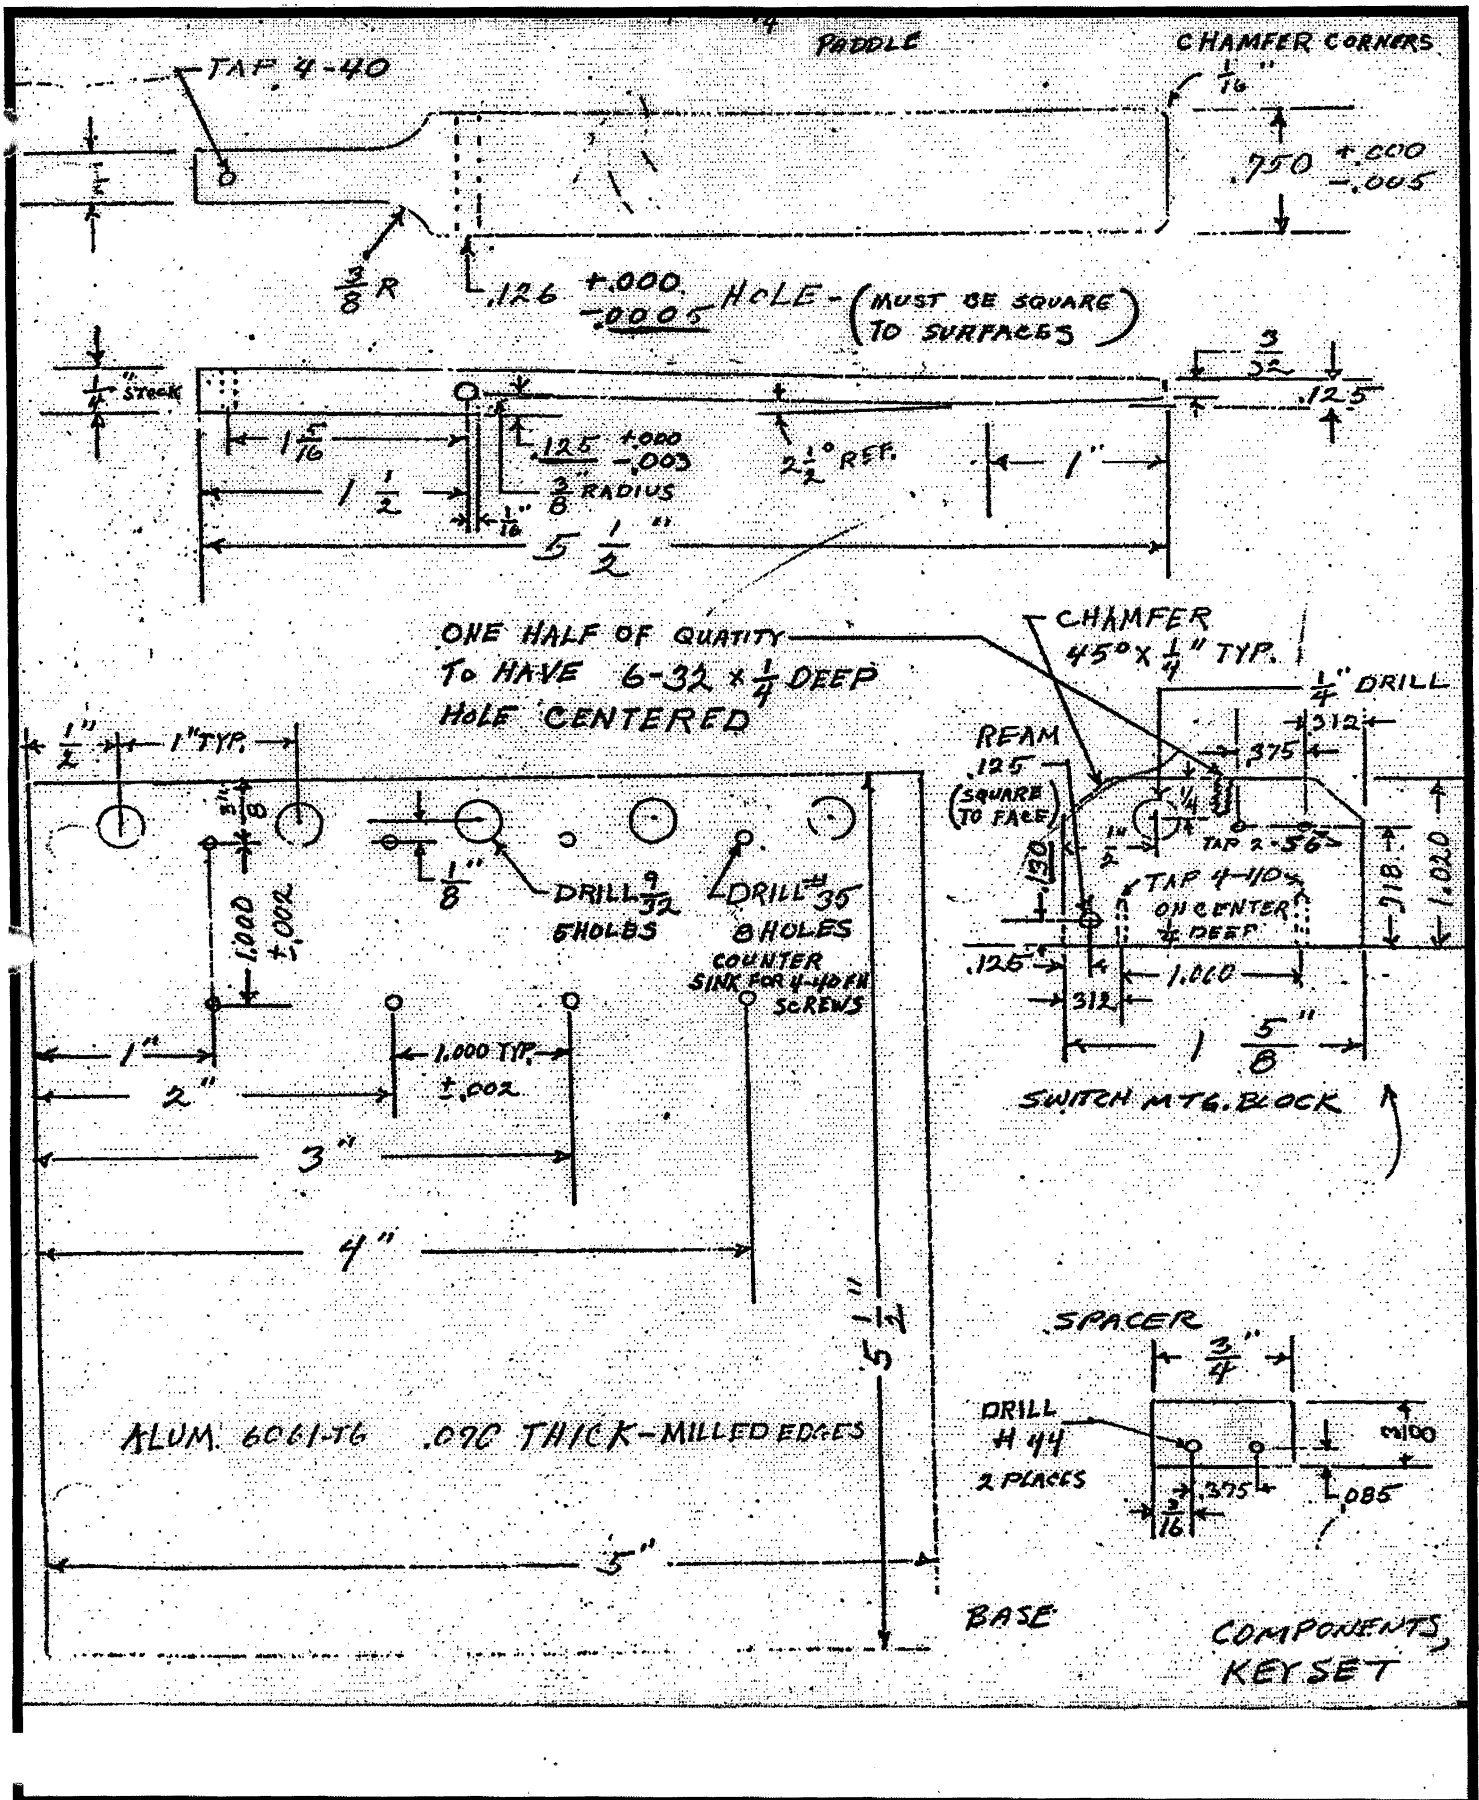 PADDLE
CHAMFER CORNERS
1/16"
TAP 4-40
1/2
.750 +.000 -.005
3/8 R
.126 +.000 -.0005 HOLE - (MUST BE SQUARE
TO SURFACES)
1/4" STOCK
3/32
.125
1 5/16
.125 +.000 -.003
2 1/2° REF.
1"
1 1/2
3/8" RADIUS
1/16"
5 1/2"
ONE HALF OF QUATITY
TO HAVE 6-32 x 1/4 DEEP
HOLE CENTERED
CHAMFER
45° x 1/4" TYP.
1/4" DRILL
.312
.375
REAM
.125
(SQUARE
TO FACE)
1/4
1/2"
TAP 2-56
.130
TAP 4-40
ON CENTER
1/4 DEEP
.718
1.020
.125
1.060
.312
1 5/8"
SWITCH MTG. BLOCK
1/2"
1" TYP.
3/8"
1/8"
DRILL 9/32
5 HOLES
DRILL #35
8 HOLES
COUNTER
SINK FOR 4-40 FH
SCREWS
1.000
±.002
1"
1.000 TYP.
±.002
2"
3"
4"
5 1/2"
ALUM. 6061-T6 .090 THICK-MILLED EDGES
5"
BASE
SPACER
3/4"
DRILL
# 44
2 PLACES
3/8
.375
.085
3/16
COMPONENTS,
KEYSET